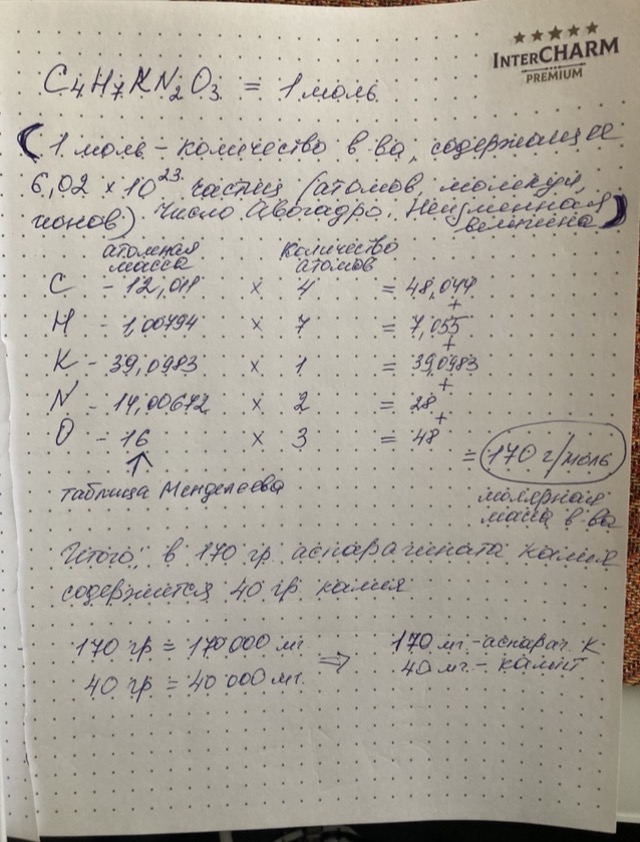 INTERCHARM
PREMIUM
C4H7KN2O3 = 1 моль
(1 моль - количество в ва, содержащее
6,02 × 10^23 частиц (атомов, молекул,
ионов). Число Авогадро. Неизменная
величина)
атомная масса количество атомов
C - 12,011 × 4 = 48,044
+
H - 1,00794 × 7 = 7,055
+
K - 39,0983 × 1 = 39,0983
+
N - 14,00672 × 2 = 28
+
O - 16 × 3 = 48
= 170 г/моль
таблица Менделеева
молярная
масса в-ва
Итого: в 170 гр аспарагината калия
содержится 40 гр калия
170 гр = 170 000 мг ⇒ 170 мг - аспараг. К
40 гр = 40 000 мг 40 мг - калий